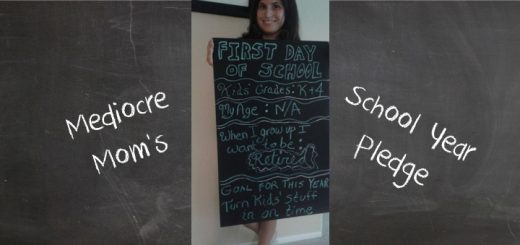 Mediocre
Mom's
FIRST DAY
OF SCHOOL
Kids' Grades: K+4
My Age: N/A
When I grow up I
want to be:
Retired
GOAL FOR THIS YEAR
Turn Kids' stuff
in on time
School Year
Pledge